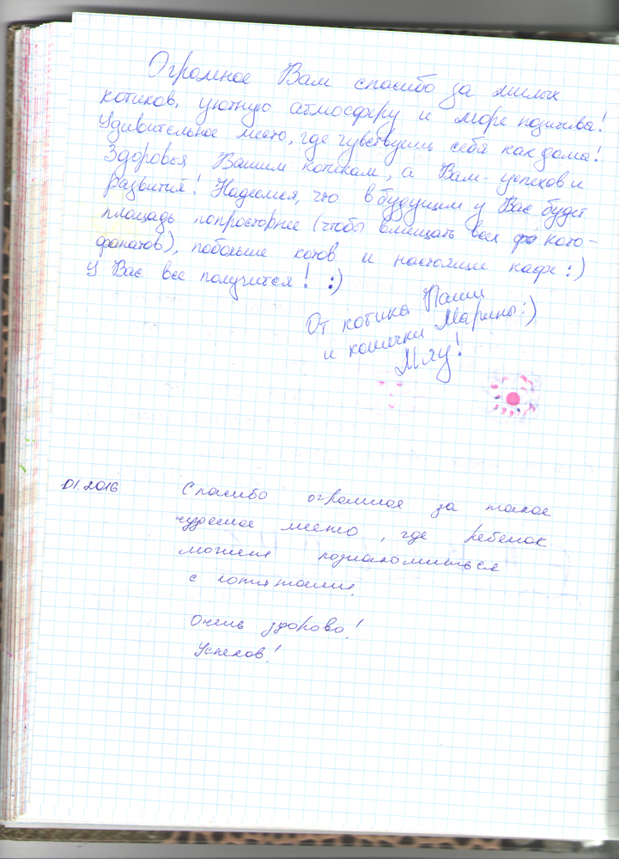 Огромное Вам спасибо за милых
котиков, уютную атмосферу и море позитива!
Удивительное место, где чувствуешь себя как дома!
Здоровья Вашим котикам, а Вам - успехов и
развития! Надеемся, что в будущем у Вас будет
площадь попросторнее (чтобы вмещать всех кото-
фанатов), побольше котов и настоящее кафе :)
У Вас все получится! :)
От котика Паши
и кошечки Марины :)
Мяу!
01.2016 Спасибо огромное за такое
чудесное место, где ребенок
может познакомиться
с котятами.
Очень здорово!
Успехов!